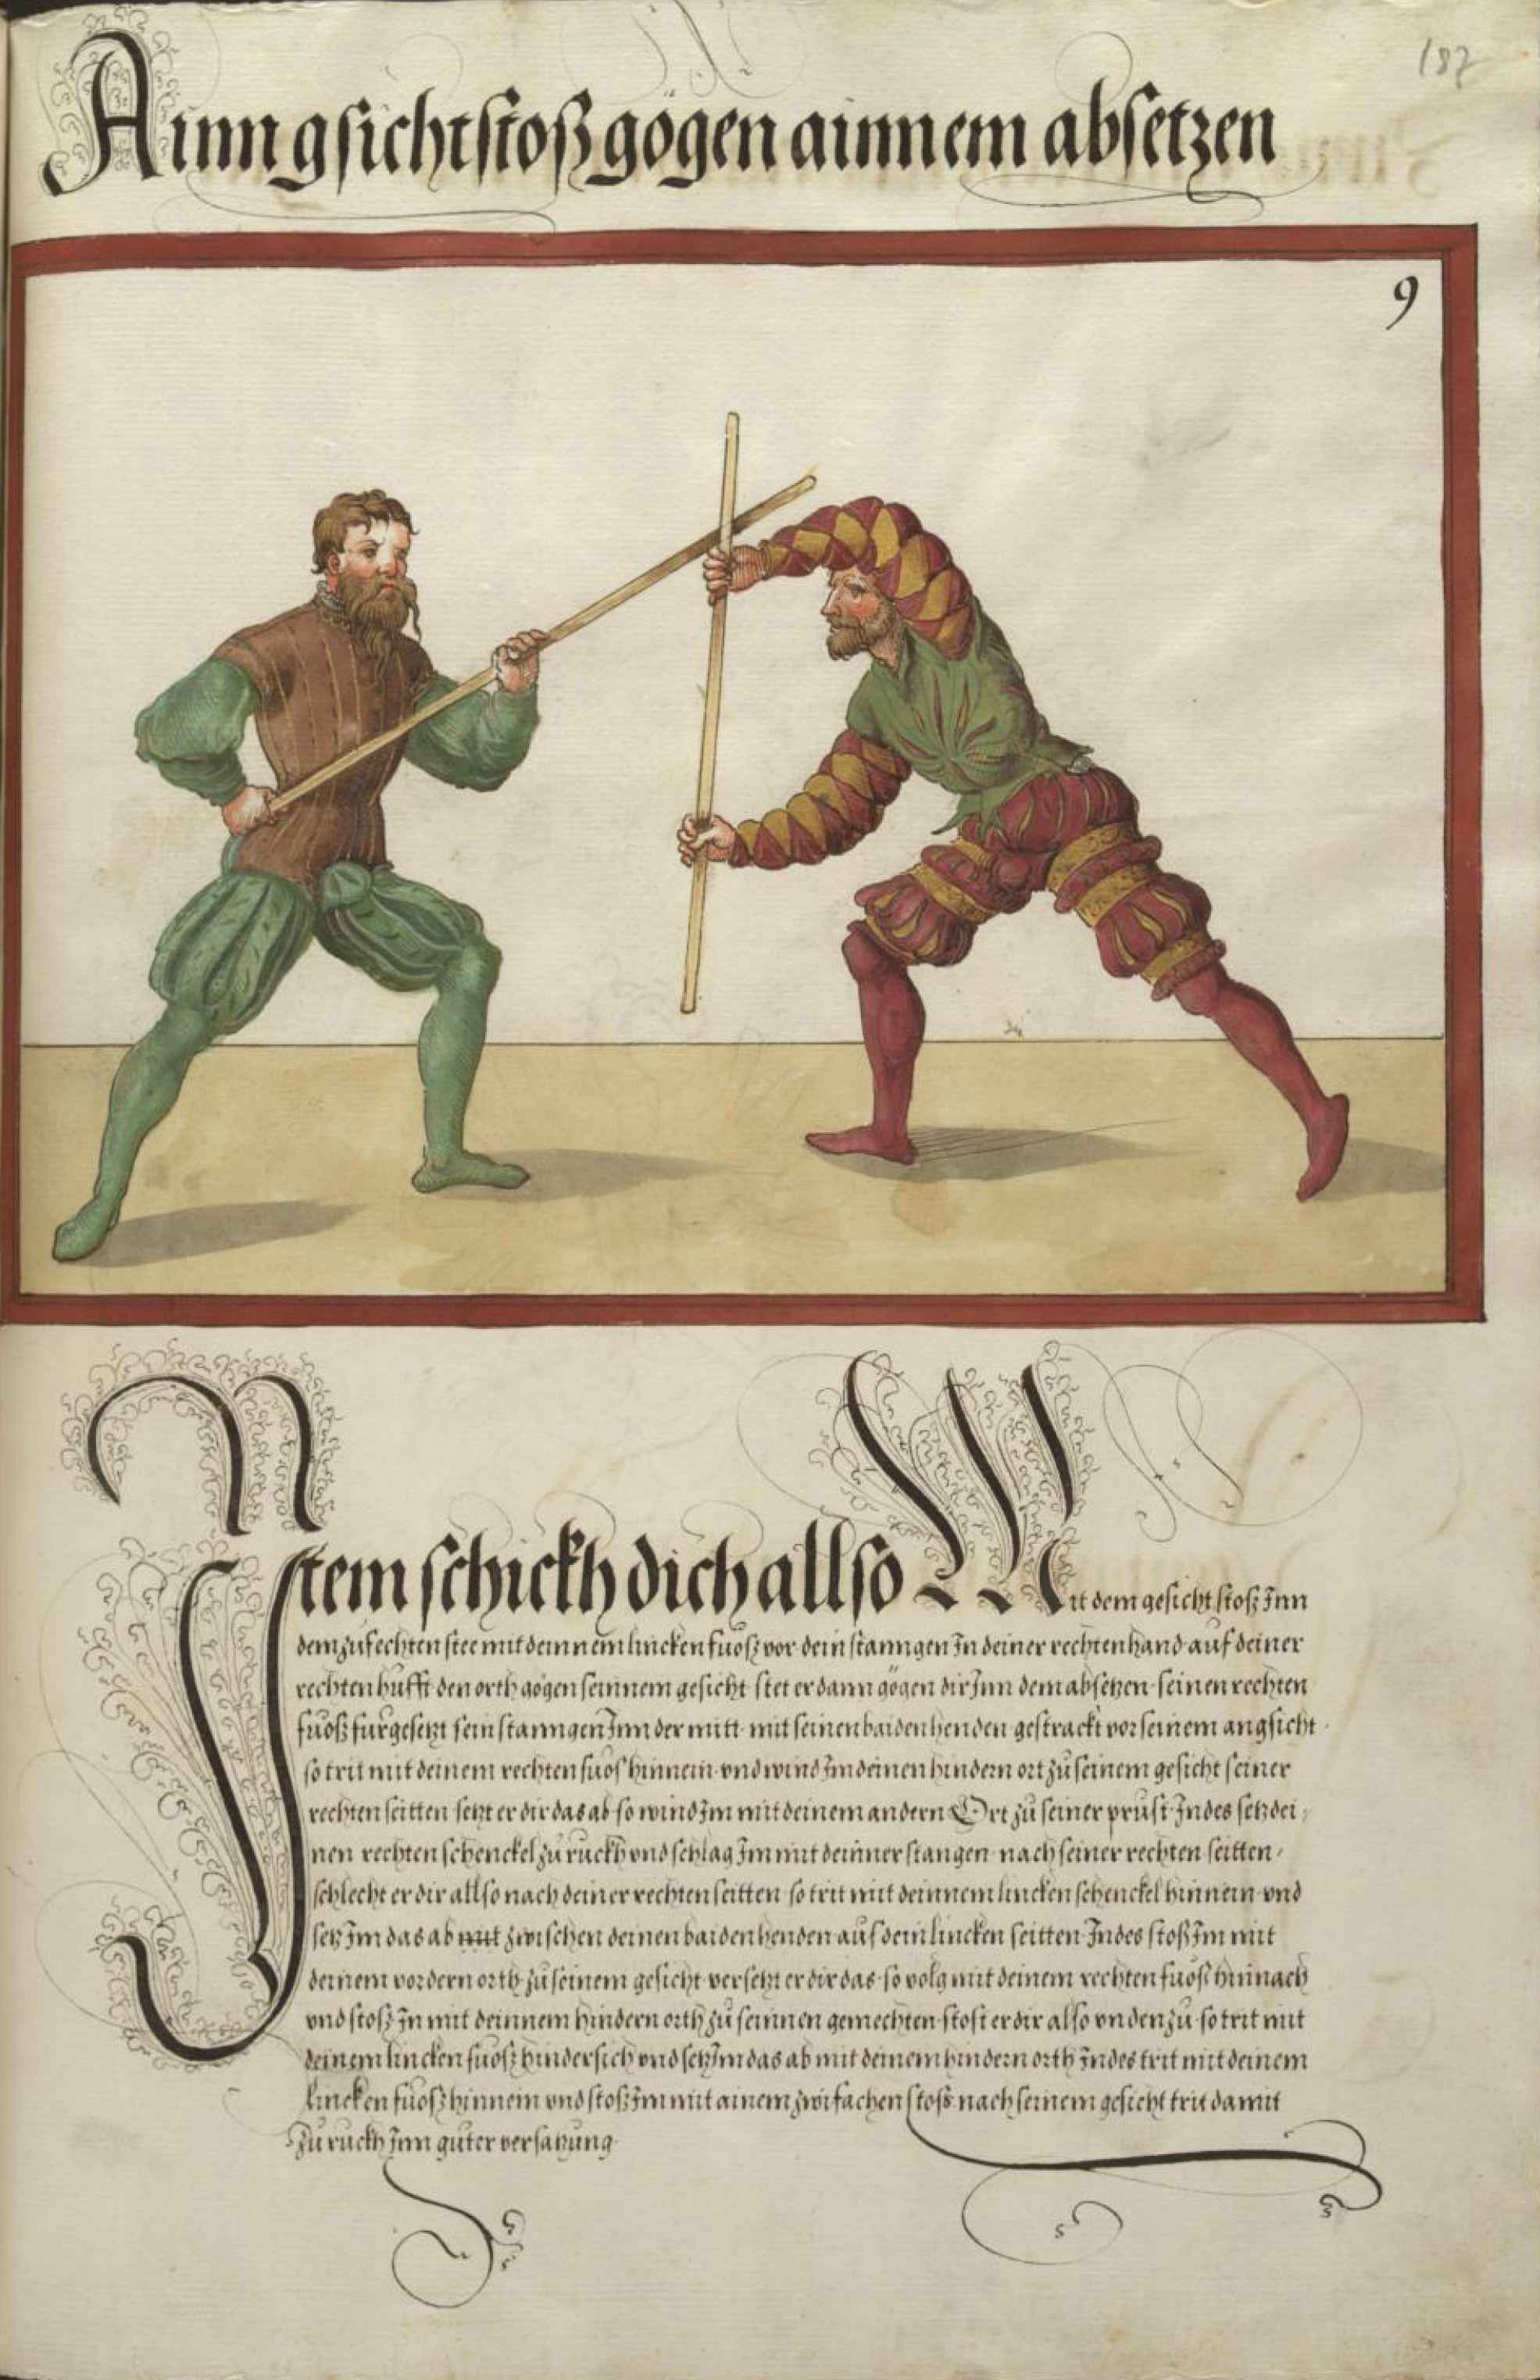 187
Ainn gsichtstoß gögen ainnem absetzen
9
Item schickh dich allso Mit dem gesicht stoß Inn
dem zufechten stee mit deinnem lincken fuoß vor dein stanngen In deiner rechten hand auf deiner
rechten hufft den orth gögen seinnem gesicht stet er dann gögen dir Inn dem absetzen seinen rechten
fuoß furgesetzt sein stanngen Inn der mitt mit seinen baiden henden gestrackt vor seinem angsicht
so trit mit deinem rechten fuoß hinnein vnd wind Im deinen hindern ort zu seinem gesicht seiner
rechten seitten setzt er dir das ab so wind Im mit deinem andern Ort zu seiner prust Indes setz dei¬
nen rechten schenckel zu ruckh vnd schlag Im mit deinner stangen nach seiner rechten seitten
schlecht er dir allso nach deiner rechten seitten so trit mit deinnem lincken schenckel hinnein vnd
setz Im das ab mit zwischen deinen baiden henden auf dein lincken seitten Indes stoß Im mit
deinem vordern orth zu seinem gesicht versetzt er dir das so volg mit deinem rechten fuoß hinnach
vnd stoß In mit deinnem hindern orth zu seinnen gemechten stost er dir also vnden zu so trit mit
deinem lincken fuoß hindersich vnd setz Im das ab mit deinem hindern orth Indes trit mit deinem
lincken fuoß hinnein vnd stoß Im mit ainem zwifachen stoß nach seinem gesicht trit damit
zu ruckh Inn guter versatzung